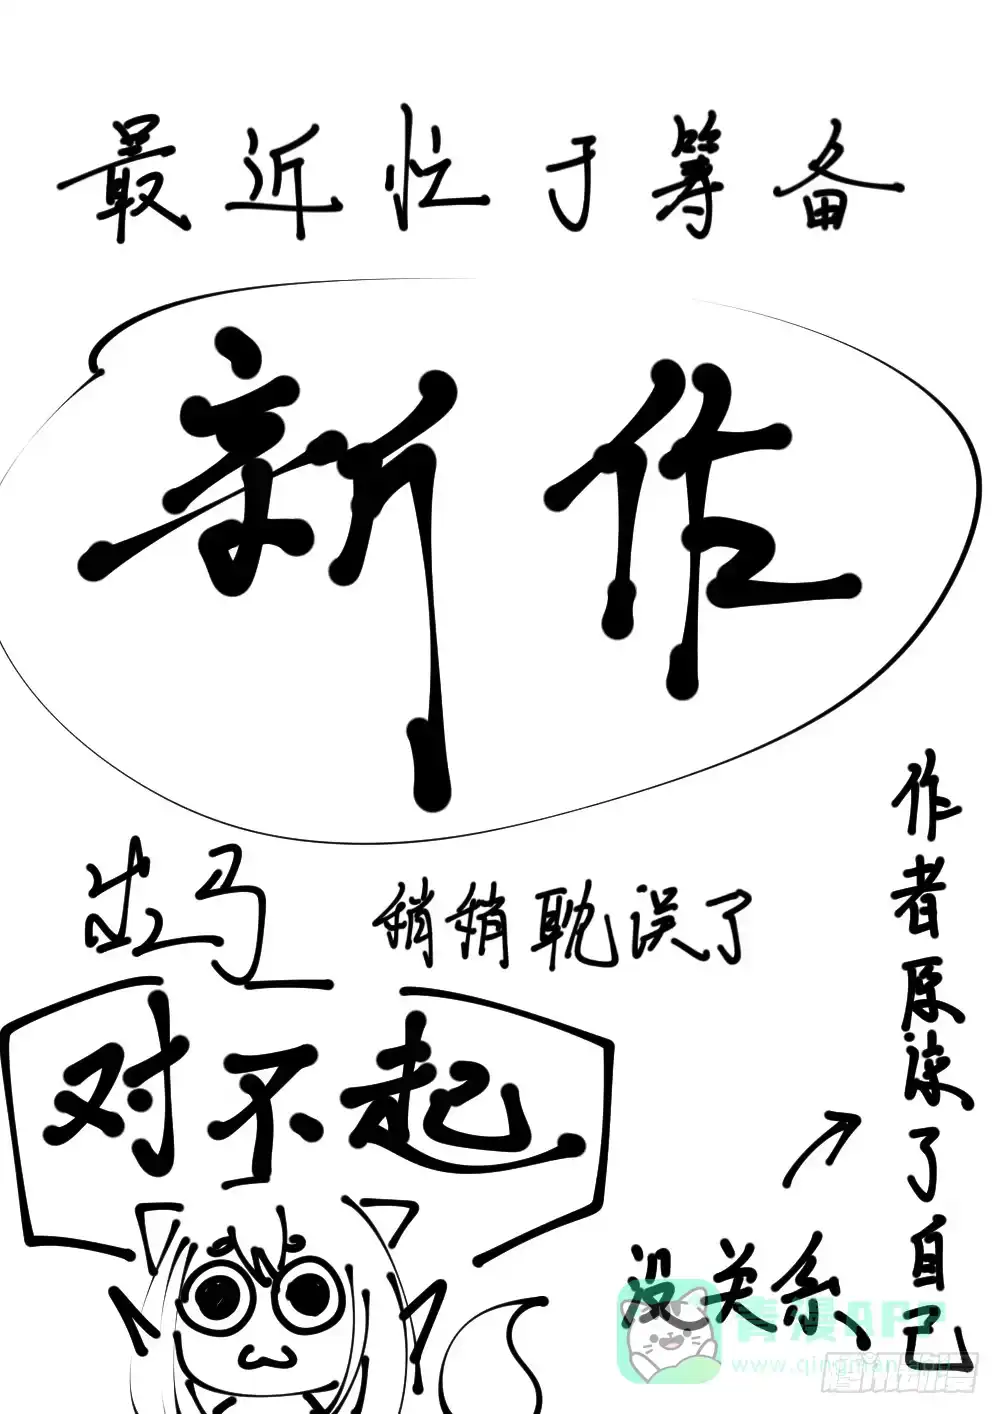 最近忙于筹备
新作
出马 稍稍耽误了
对不起
没关系
作者原谅了自己
青漫APP
腾讯动漫